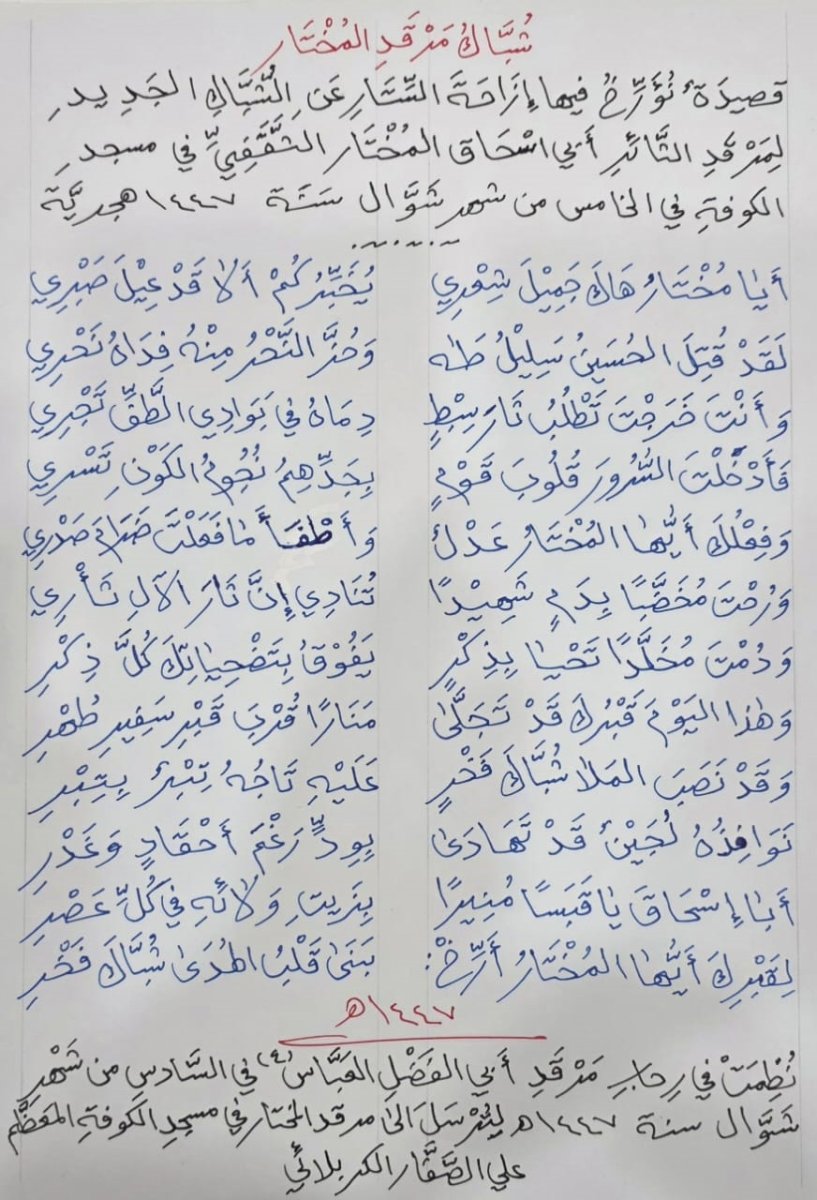 شُبَّاكُ مَرْقَدِ المُخْتَار
قصيدَةٌ نُؤَرِّخُ فيها إِزَاحَةَ السِّتَارِ عَنِ الشُّبَّاكِ الجَدِيدِ
لِمَرْقَدِ الثَّائِرِ أَبِي اسْحَاق المُخْتَار الثَّقَفِيِّ في مسجدِ
الكوفةِ في الخامس من شهرِ شَوَّال سَنَة ١٤٤٧ هجريَّة
أَيَا مُخْتَارُ هَاكَ جَمِيْلَ شِعْرِي يُخَبِّرُكُمْ أَلَا قَدْ عِيْلَ صَبْرِي
لَقَدْ قُتِلَ الحُسَينُ سَلِيْلُ طَه وَحُزَّ النَّحْرُ مِنْهُ فِدَاهُ نَحْرِي
وَأَنْتَ خَرَجْتَ تَطْلُبُ ثَارَ سِبْطٍ دِمَاهُ في بَوَادِي الطَّفِّ تَجْرِي
فَأَدْخَلْتَ السُّرُورَ قُلُوبَ قَوْمٍ بِجَدِّهِمُ نُجُومُ الكَوْنِ تَسْرِي
وَفِعْلُكَ أَيُّهَا المُخْتَارُ عَدْلٌ وَأَطْفَأَ مَا فَعَلْتَ ضَرَامَ صَدْرِي
وَرُحْتَ مُخَضَّبًا بِدَمٍ شَهِيْدًا تُنَادِي إِنَّ ثَارَ الآلِ ثَأْرِي
وَدُمْتَ مُخَلَّدًا تَحْيَا بِذِكْرٍ يَفُوْقُ بِتَضْحِيَاتِكَ كُلَّ ذِكْرِ
وَهَذَا اليَوْمَ قَبْرُكَ قَدْ تَجَلَّى مَنَارًا قُرْبَ قَبْرِ سَفِيرِ طُهْرِ
وَقَدْ نَصَبَ المَلَا شُبَّاكَ فَخْرٍ عَلَيْهِ تَاجُهُ تِبْرٌ بِتِبْرِ
نَوَافِذُهُ لُجَيْنٌ قَدْ تَهَادَى بِوِدٍّ رَغْمَ أَحْقَادٍ وَغَدْرِ
أَبَا إِسْحَاقَ يَا قَبَسًا مُنِيرًا بِزَيتِ وَلَائِهِ في كُلِّ عَصْرِ
لِقَبْرِكَ أَيُّهَا المُخْتَارُ أَرِّخْ: بَنَى قَلْبُ الهُدَى شُبَّاكَ فَخْرِ
١٤٤٧هـ
نُظِمَتْ في رِحَابِ مَرْقَدِ أَبِي الفَضْلِ العَبَّاس (ع) في السَّادسِ من شَهْرِ
شَوَّال سنة ١٤٤٧هـ لِتُرْسَلَ الى مرقد المختار في مسجدِ الكوفةِ المعَظَّم
علي الصَّفَّار الكربلائي